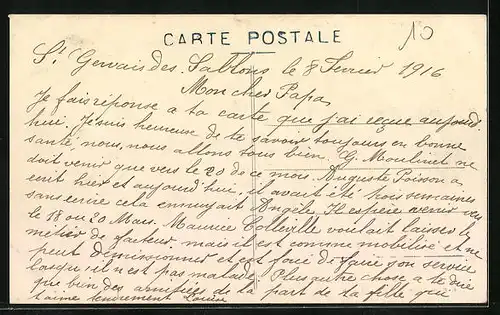 CARTE POSTALE
10
St Gervais des Sablons le 8 Fevrier 1916
Mon cher Papa,
Je fais réponse a ta carte que j'ai reçue aujourd
hui. Je suis heureuse de te savoir toujours en bonne
santé, nous, nous allons tous bien. G. Moulinet ne
doit venir que vers le 20 de ce mois. Auguste Poisson a
ecrit hier et aujourd'hui, il avait été trois semaines
sans ecrire cela ennuyait Angèle. Il espère venir vers
le 18 ou 20 Mars. Maurice voulait laisser le
métier de facteur, mais il est comme mobilisé et ne
peut demissionner et est forcé de faire son service
lorsqu'il n'est pas malade. Plus autre chose a te dire
que bien des amitiées de la part de ta fille qui
t'aime tendrement Louise